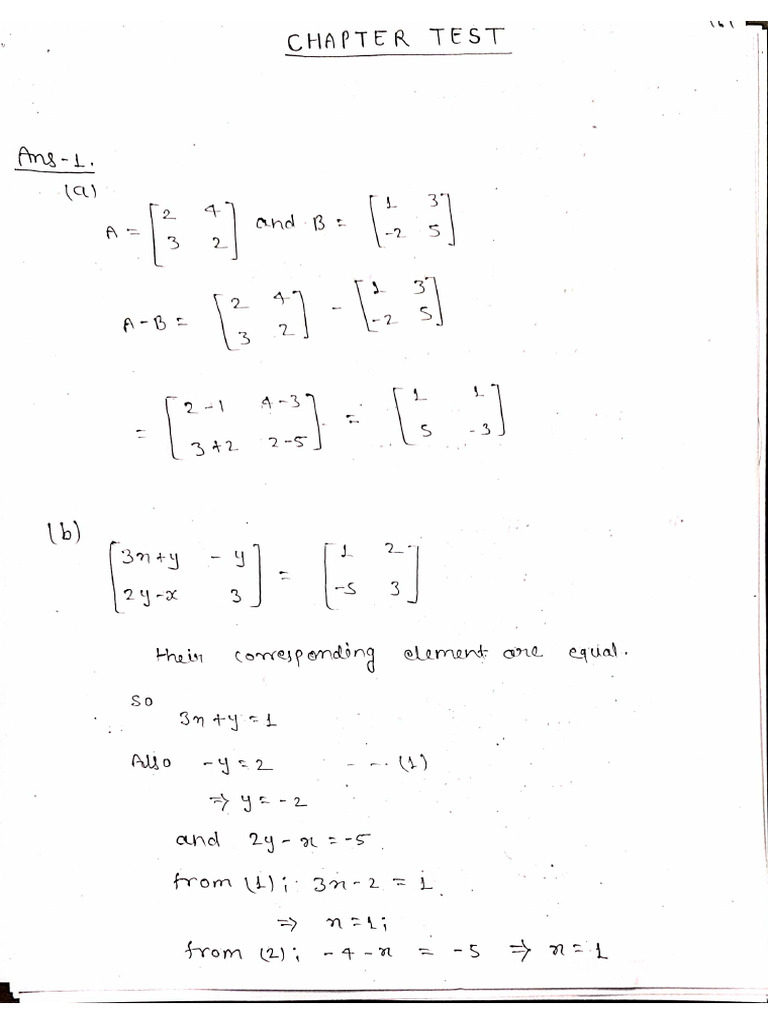 CHAPTER TEST
Ans-1.
(a)
A = [2 4
3 2] and B = [1 3
-2 5]
A-B = [2 4
3 2] - [1 3
-2 5]
= [2-1 4-3
3+2 2-5] = [1 1
5 -3]
(b)
[3x+y -y
2y-x 3] = [1 2
-5 3]
their corresponding element are equal.
so
3x+y=1
Also -y=2 - -.. (1)
⇒ y=-2
and 2y-x=-5.
from (1); 3x-2=1.
⇒ x=1;
from (2); -4-x = -5 ⇒ x=1